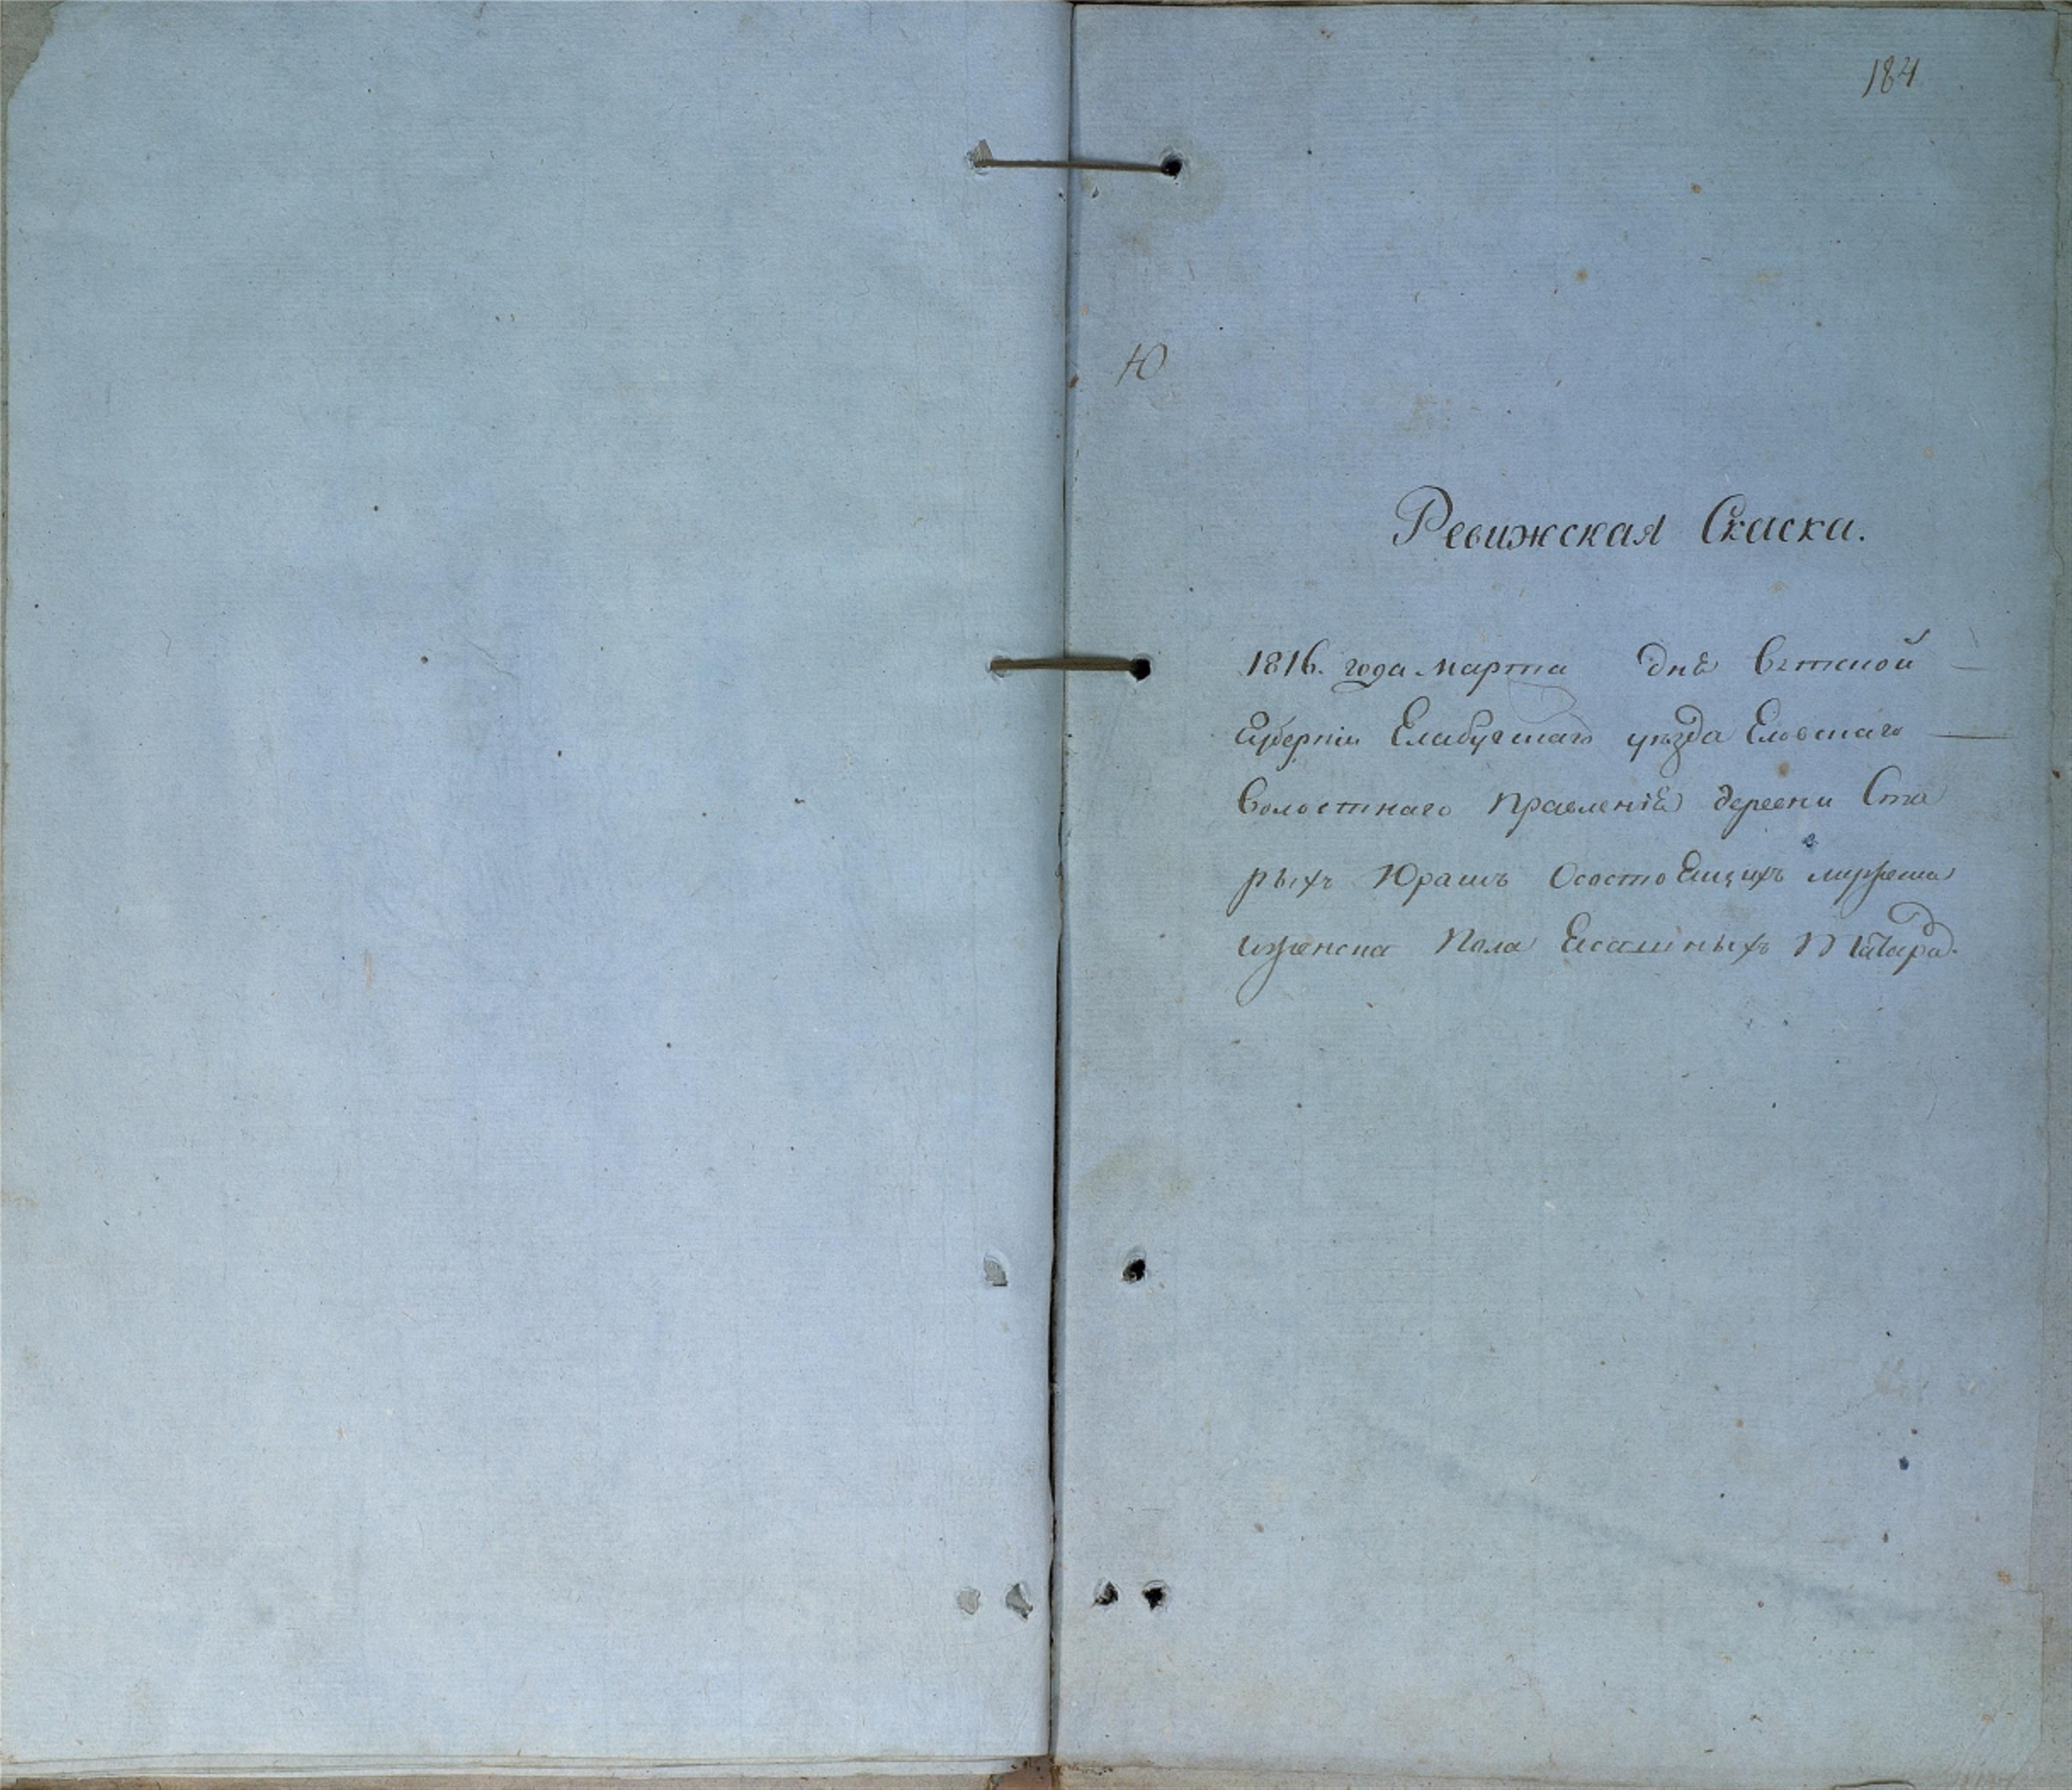 184
Ю
Ревижская Скаска.
1816. года марта днѣ Вятской
Губернїи Елабускаго уѣзда Еловскаго
волостнаго правленїѣ деревни Ста
рыхъ Юрашъ Осостоещихъ мужеска
иженска пола Есашныхъ Татаръ.